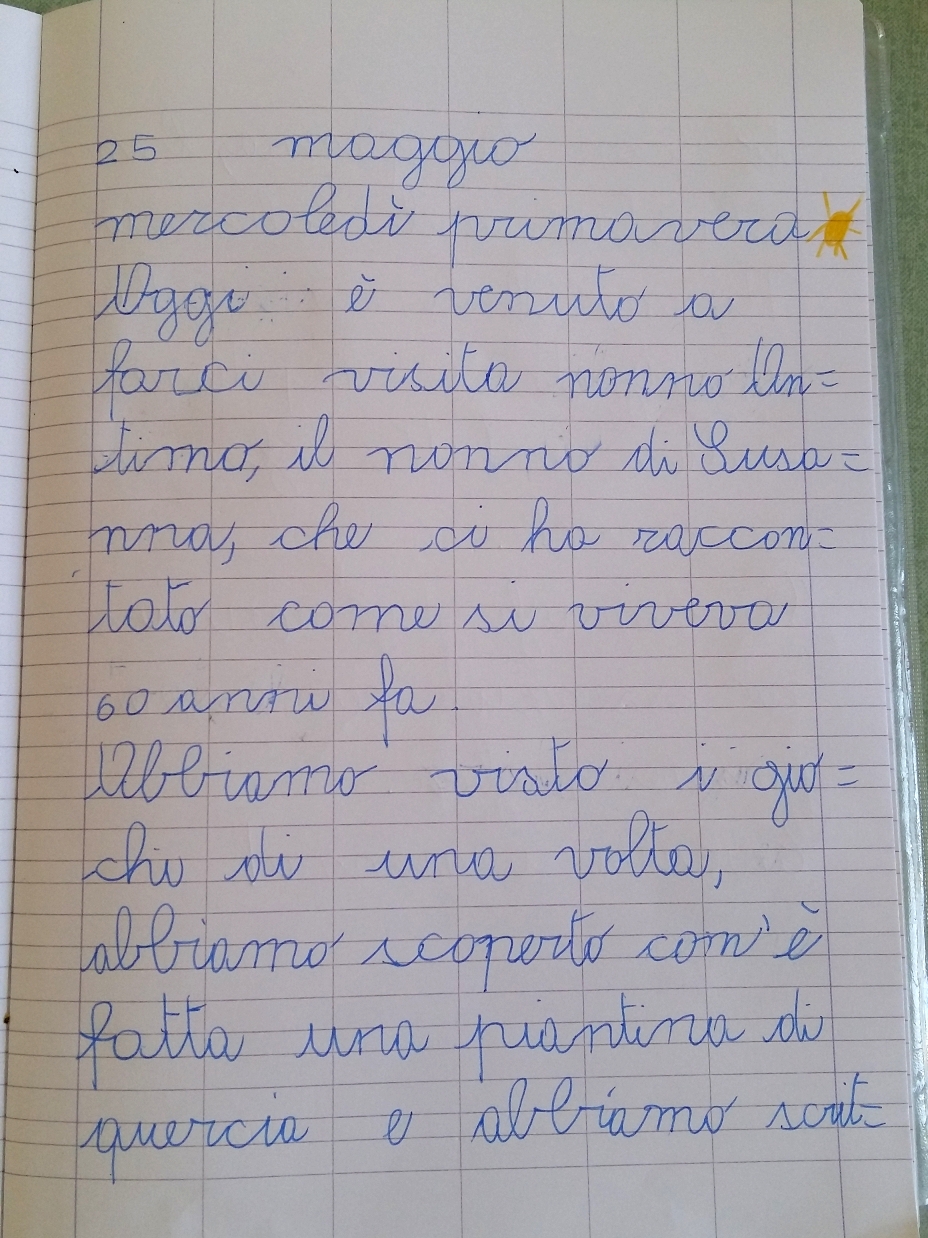 25 maggio
mercoledì primavera
Oggi è venuto a
farci visita nonno An=
timo, il nonno di Susa=
nna, che ci ha raccon=
tato come si viveva
60 anni fa.
Abbiamo visto i gio=
chi di una volta,
abbiamo scoperto com'è
fatta una piantina di
quercia e abbiamo scrit=